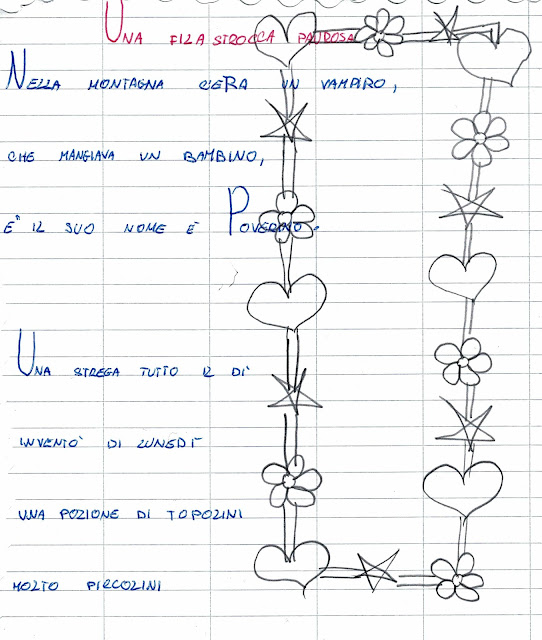 UNA FILASTROCCA PAUROSA
NELLA MONTAGNA C'ERA UN VAMPIRO,
CHE MANGIAVA UN BAMBINO,
E IL SUO NOME È POVERINO.
UNA STREGA TUTTO IL DÌ
INVENTÒ DI LUNEDÌ
UNA POZIONE DI TOPOLINI
MOLTO PICCOLINI